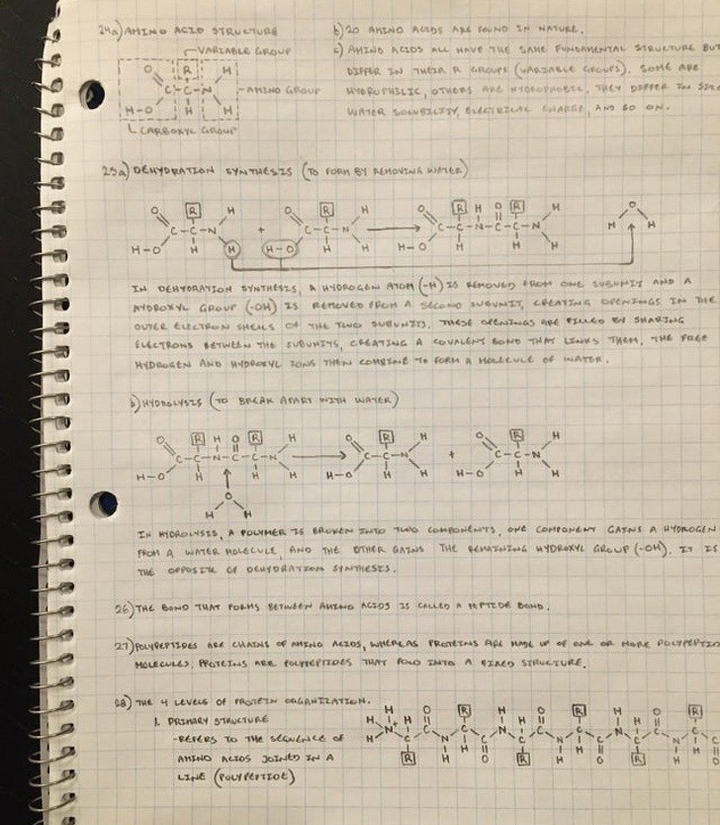 24a) AMINO ACID STRUCTURE
VARIABLE GROUP
O R H
C-C-N
AMINO GROUP
H-O H H
CARBOXYL GROUP
b) 20 AMINO ACIDS ARE FOUND IN NATURE.
c) AMINO ACIDS ALL HAVE THE SAME FUNDAMENTAL STRUCTURE BUT
DIFFER IN THEIR R GROUPS (VARIABLE GROUPS). SOME ARE
HYDROPHILIC, OTHERS ARE HYDROPHOBIC, THEY DIFFER IN SIZE
WATER SOLUBILITY, ELECTRICAL CHARGE, AND SO ON.
25a) DEHYDRATION SYNTHESIS (TO FORM BY REMOVING WATER)
O R H O R H O R H O R H O
C-C-N + C-C-N C-C-N-C-C-N H H
H-O H H H-O H H H-O H H H
IN DEHYDRATION SYNTHESIS, A HYDROGEN ATOM (-H) IS REMOVED FROM ONE SUBUNIT AND A
HYDROXYL GROUP (-OH) IS REMOVED FROM A SECOND SUBUNIT, CREATING OPENINGS IN THE
OUTER ELECTRON SHELLS OF THE TWO SUBUNITS. THESE OPENINGS ARE FILLED BY SHARING
ELECTRONS BETWEEN THE SUBUNITS, CREATING A COVALENT BOND THAT LINKS THEM, THE FREE
HYDROGEN AND HYDROXYL IONS THEN COMBINE TO FORM A MOLECULE OF WATER.
b) HYDROLYSIS (TO BREAK APART WITH WATER)
O R H O R H O R H O R H
C-C-N-C-C-N C-C-N + C-C-N
H-O H H H H-O H H H-O H H
O
H H
IN HYDROLYSIS, A POLYMER IS BROKEN INTO TWO COMPONENTS, ONE COMPONENT GAINS A HYDROGEN
FROM A WATER MOLECULE, AND THE OTHER GAINS THE REMAINING HYDROXYL GROUP (-OH). IT IS
THE OPPOSITE OF DEHYDRATION SYNTHESIS.
26) THE BOND THAT FORMS BETWEEN AMINO ACIDS IS CALLED A PEPTIDE BOND.
27) POLYPEPTIDES ARE CHAINS OF AMINO ACIDS, WHEREAS PROTEINS ARE MADE UP OF ONE OR MORE POLYPEPTID
MOLECULES, PROTEINS ARE POLYPEPTIDES THAT FOLD INTO A FIXED STRUCTURE.
28) THE 4 LEVELS OF PROTEIN ORGANIZATION.
1. PRIMARY STRUCTURE
-REFERS TO THE SEQUENCE OF
AMINO ACIDS JOINED IN A
LINE (POLYPEPTIDE)